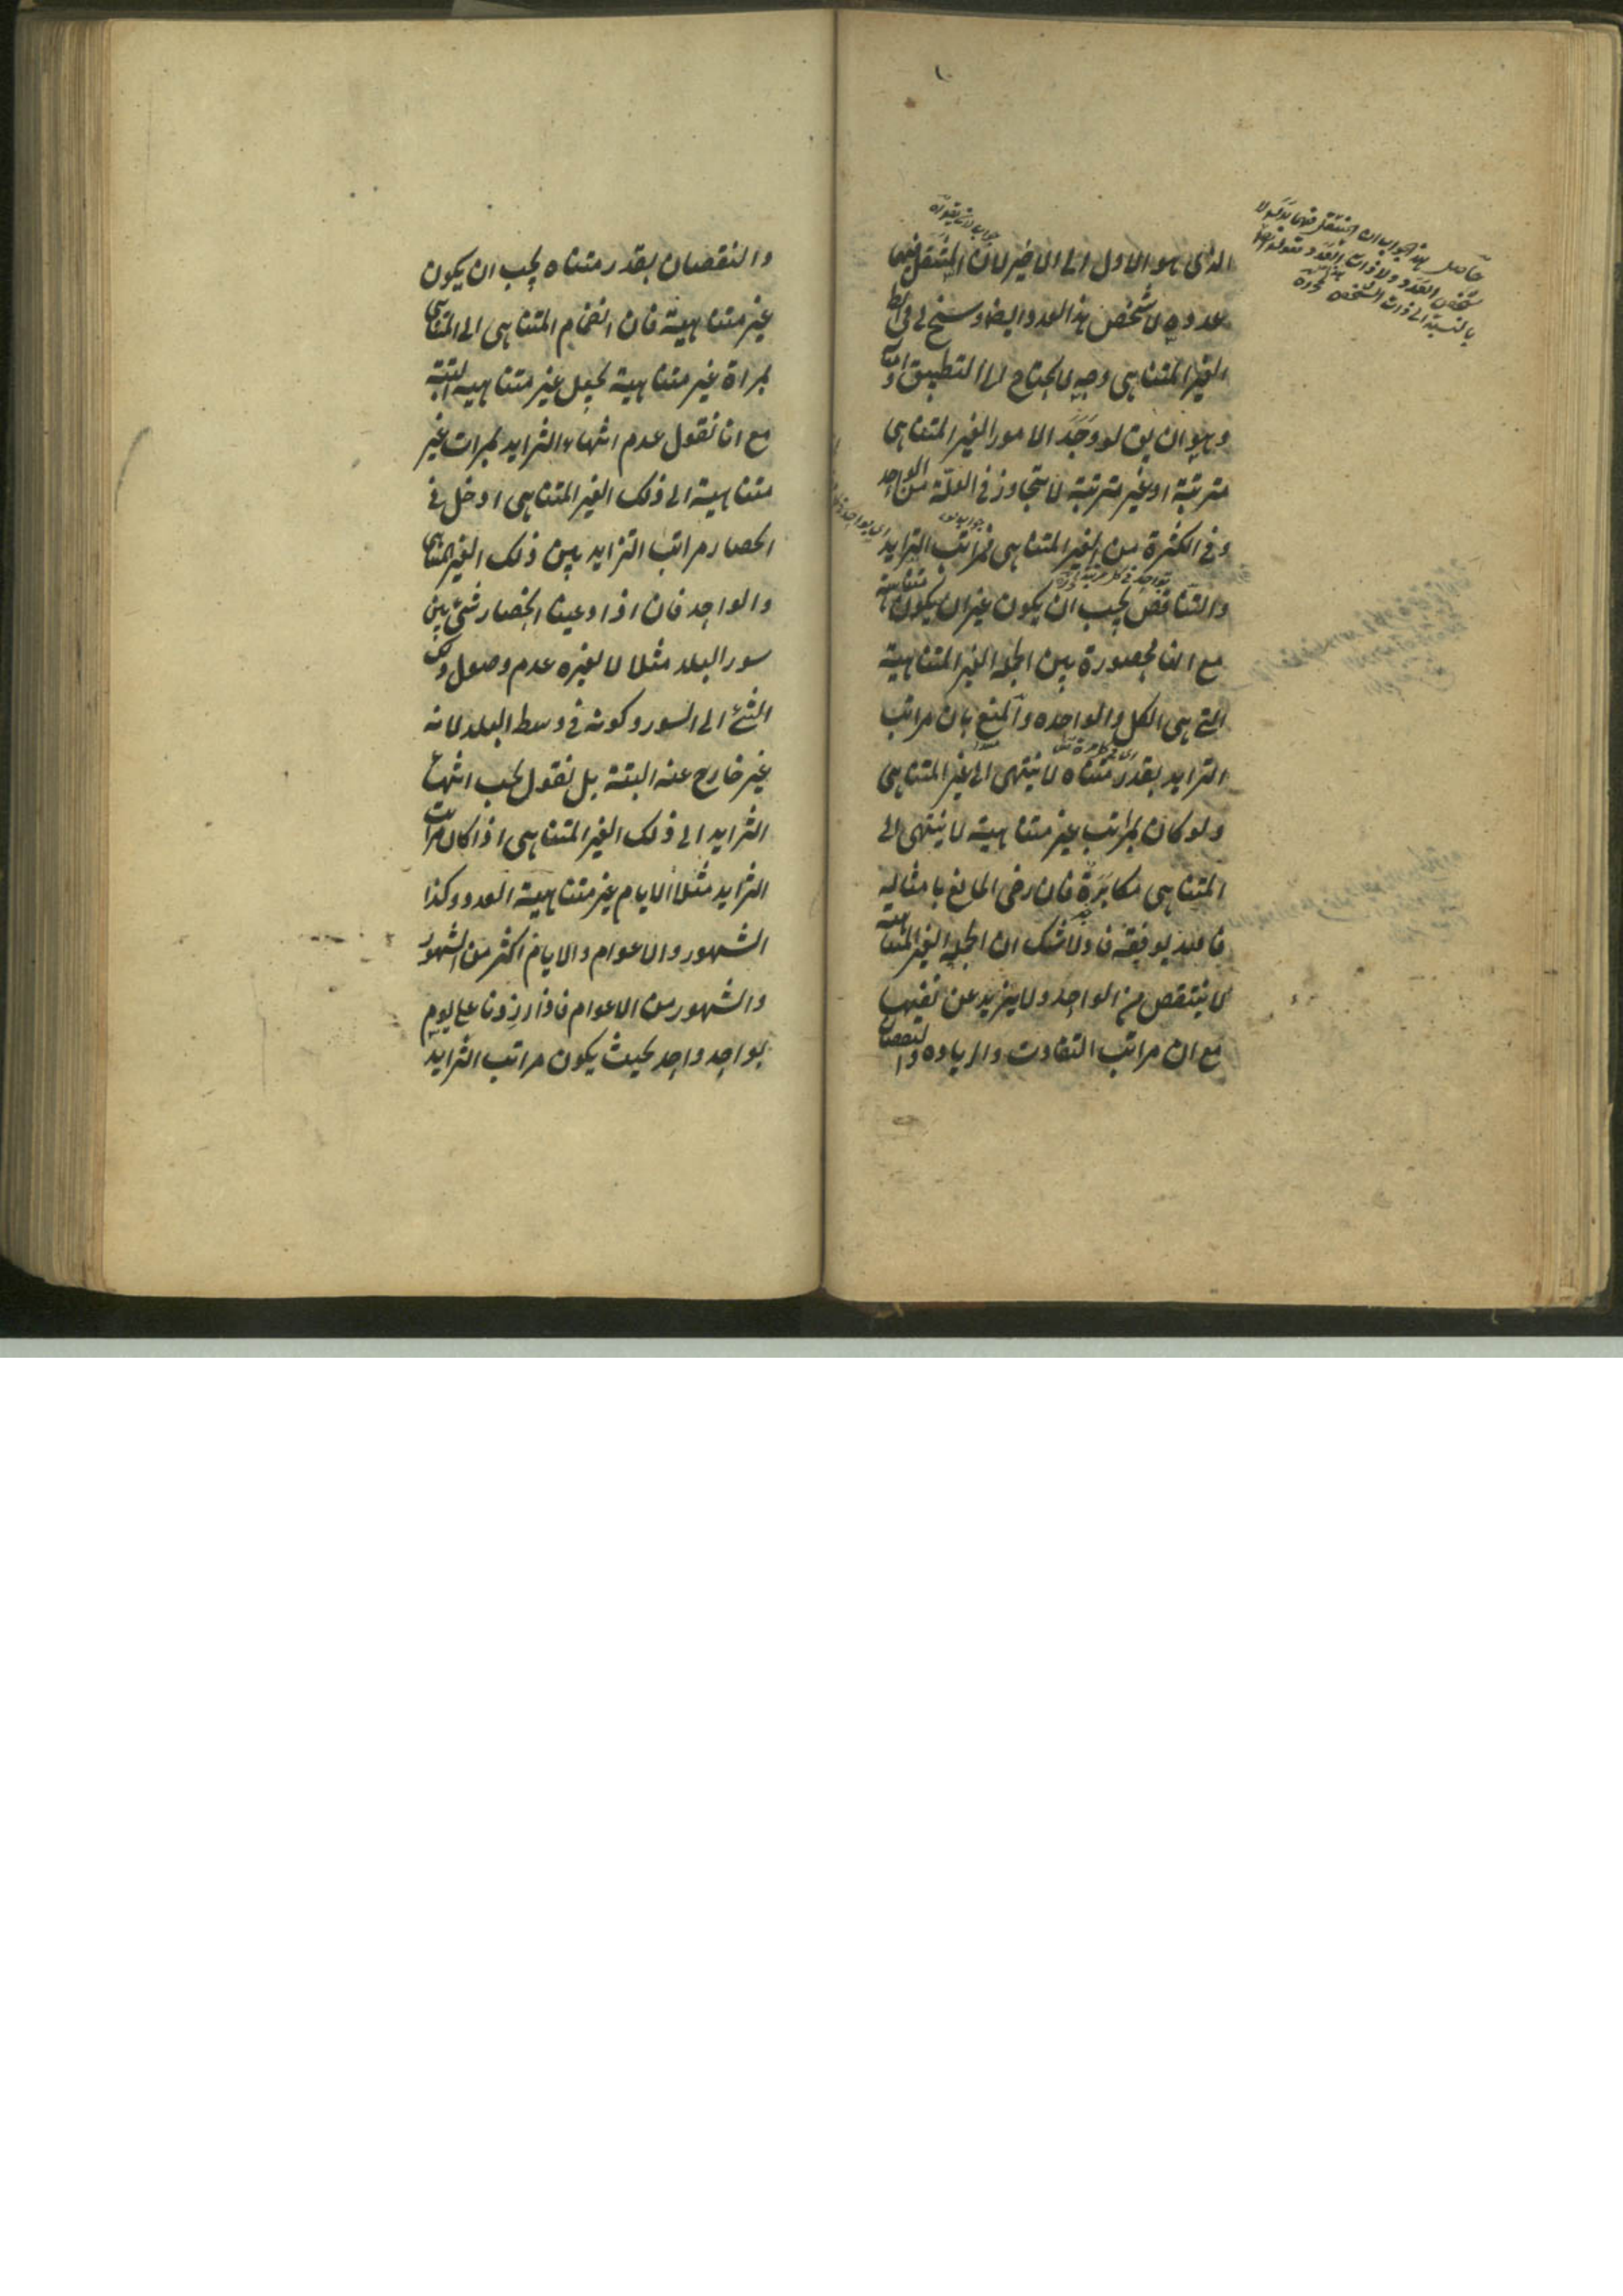 الذى هو الاول الى الاخير لان المتنقل فيها
عدده لا شخص هذا العدد وايضا سنح لى فى ابطال
الغير المتناهى وجه لا يحتاج الى التطبيق
وهو ان يق لو وجد الامور الغير المتناهى
مترتبة او غير مترتبة لا يتجاوز فى القلة من الواحد
وفى الكثرة من الغير المتناهى فمراتب التزايد
والتناقص يجب ان يكون غير ان يكون متناهية
مع انها محصورة بين الجملة الغير المتناهية
التى هى الكل والواحدة والمنع بان مراتب
التزايد بقدر متناه لا ينتهى الى غير المتناهى
ولو كان بمراتب غير متناهية لا ينتهى الى
المتناهى مكابرة فان رضى المانع بامثاله
فالله يوفقه فاذ لا شك ان الجملة الغير المتناهية
لا ينتقص من الواحد ولا يزيد عن نفسها
مع ان مراتب التفاوت والزيادة والنقصان
حاصل هذا الجواب ان المتنقل فيها
شخص العدد ولا ذات العدد
بالنسبة الى ذات الشخص
والنقصان بقدر متناه يجب ان يكون
غير متناهية فان انضمام المتناهى الى المتناهى
بمراة غير متناهية يجعل غير متناهية البتة
مع ان نقول عدم انتهاء التزايد بمرات غير
متناهية الى ذلك الغير المتناهى ادخل فى
انحصار مراتب التزايد بين ذلك الغير المتناهى
والواحد فان اذا ادعينا انحصار شئ بين
سور البلد مثلا لا يغيره عدم وصول ذلك
الشئ الى السور وكونه فى وسط البلد لانه
غير خارج عنه البتة بل نقول يجب انتهاء
التزايد الى ذلك الغير المتناهى اذا كان مرات
التزايد مثلا الايام غير متناهية العدد وكذا
الشهور والاعوام والايام اكثر من الشهور
والشهور من الاعوام فاذا زدنا على يوم
بواحد واحد بحيث يكون مراتب التزايد